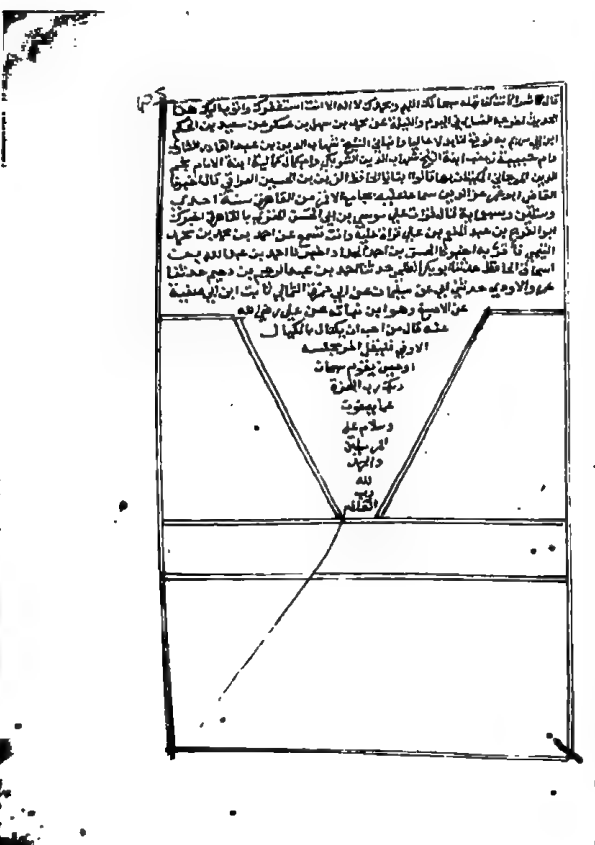 قال كلمات قبله سبحانك اللهم وبحمدك لا اله الا انت استغفرك واتوب اليك هذا
اخرجه النسائي في اليوم والليلة عن محمد بن سهل بن عسكر عن سعيد بن الحكم
ابن ابي مريم به فوقع لنا بدلا عاليا واخبرني الشيخ شهاب الدين بن عبد القادر
وام حبيبة زينب ابنة الشيخ شهاب الدين الشوبكي وام كمال كمالية ابنة الامام نجم
الدين المرجاني المكيان بها قالوا انبانا الحافظ الزين بن الحسين العراقي قال اخبرنا
القاضي ابو عمر عز الدين سماعا عليه بجامع الاقمر من القاهرة سنة احدى
وستين وسبعماية انا علي موسى بن ابي الحسن بالقاهرة اخبرك
ابو الفرج بن عبد المنعم بن علي قراة عليه وانت تسمع عن احمد بن محمد بن محمد
التيمي فاقر به اخبرنا الحسن بن احمد الحداد اخبرنا احمد بن عبد الله بن
اسحاق الحافظ حدثنا ابو بكر الطلحي حدثنا احمد بن عبد الرحيم بن دحيم حدثنا
عمرو الاودي حدثني ابي عن سفيان عن ابي حمزة الثمالي ثابت ابن ابي صفية
عن الاصبغ وهو ابن نباتة عن علي رضي الله
عنه قال من احب ان يكتال بالمكيال
الاوفى فليقل اخر مجلسه
او حين يقوم سبحان
ربك رب العزة
عما يصفون
وسلام على
المرسلين
والحمد
لله
رب
العالمين